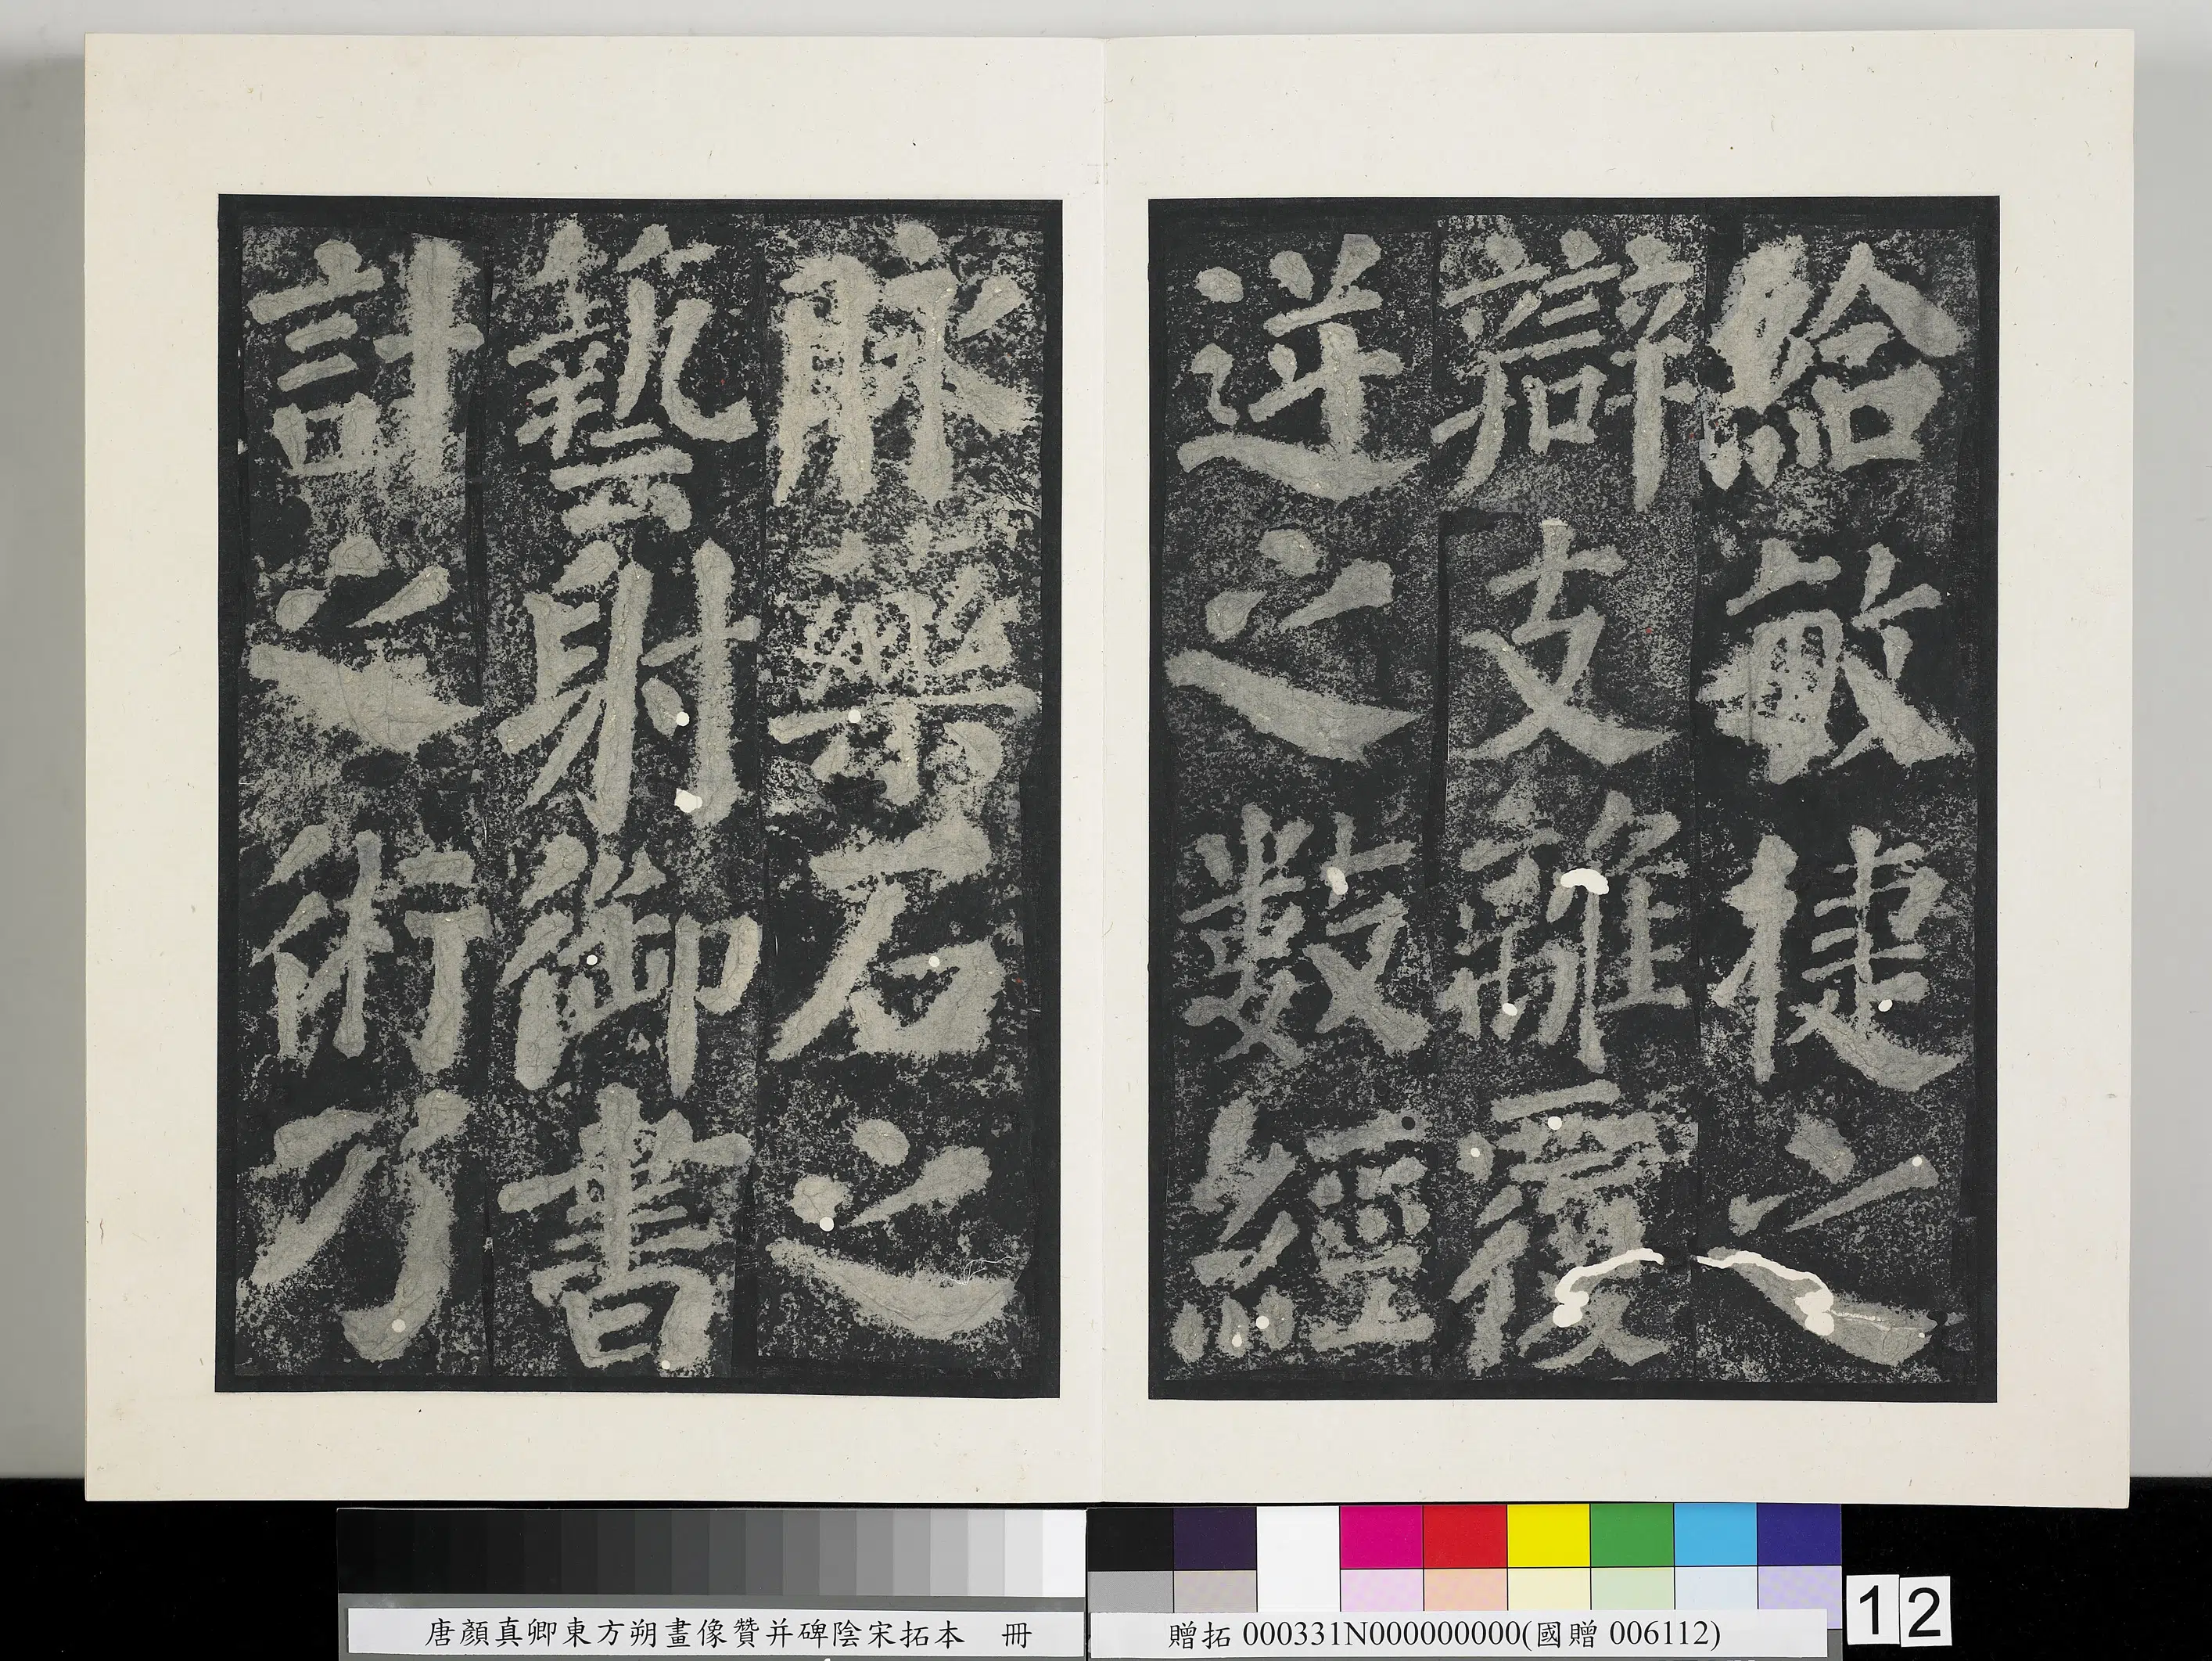 給敏捷之
辯支離覆
逆之數經
脉藥石之
藝射御書
計之術乃
唐顏真卿東方朔畫像贊并碑陰宋拓本 冊
贈拓 000331N000000000(國贈 006112)
12